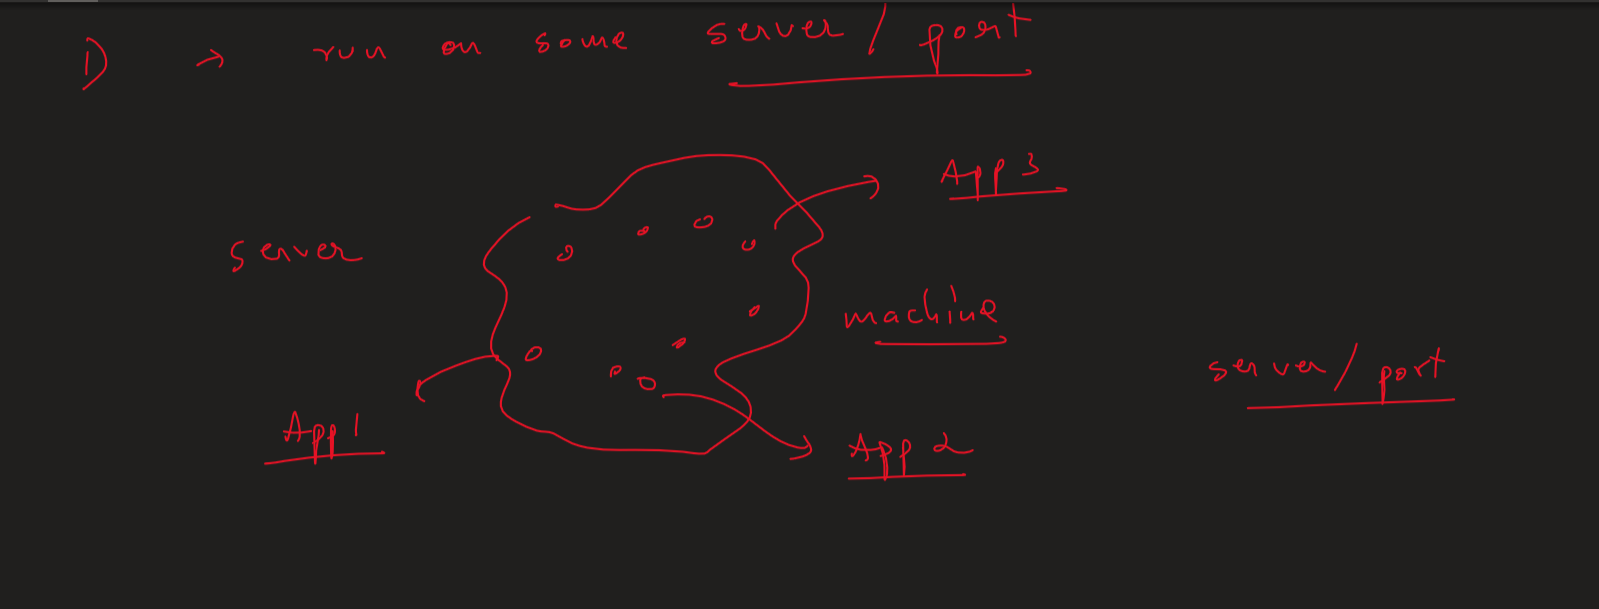 D → run on some server/port
App3
server
machine
server/port
App1
App2